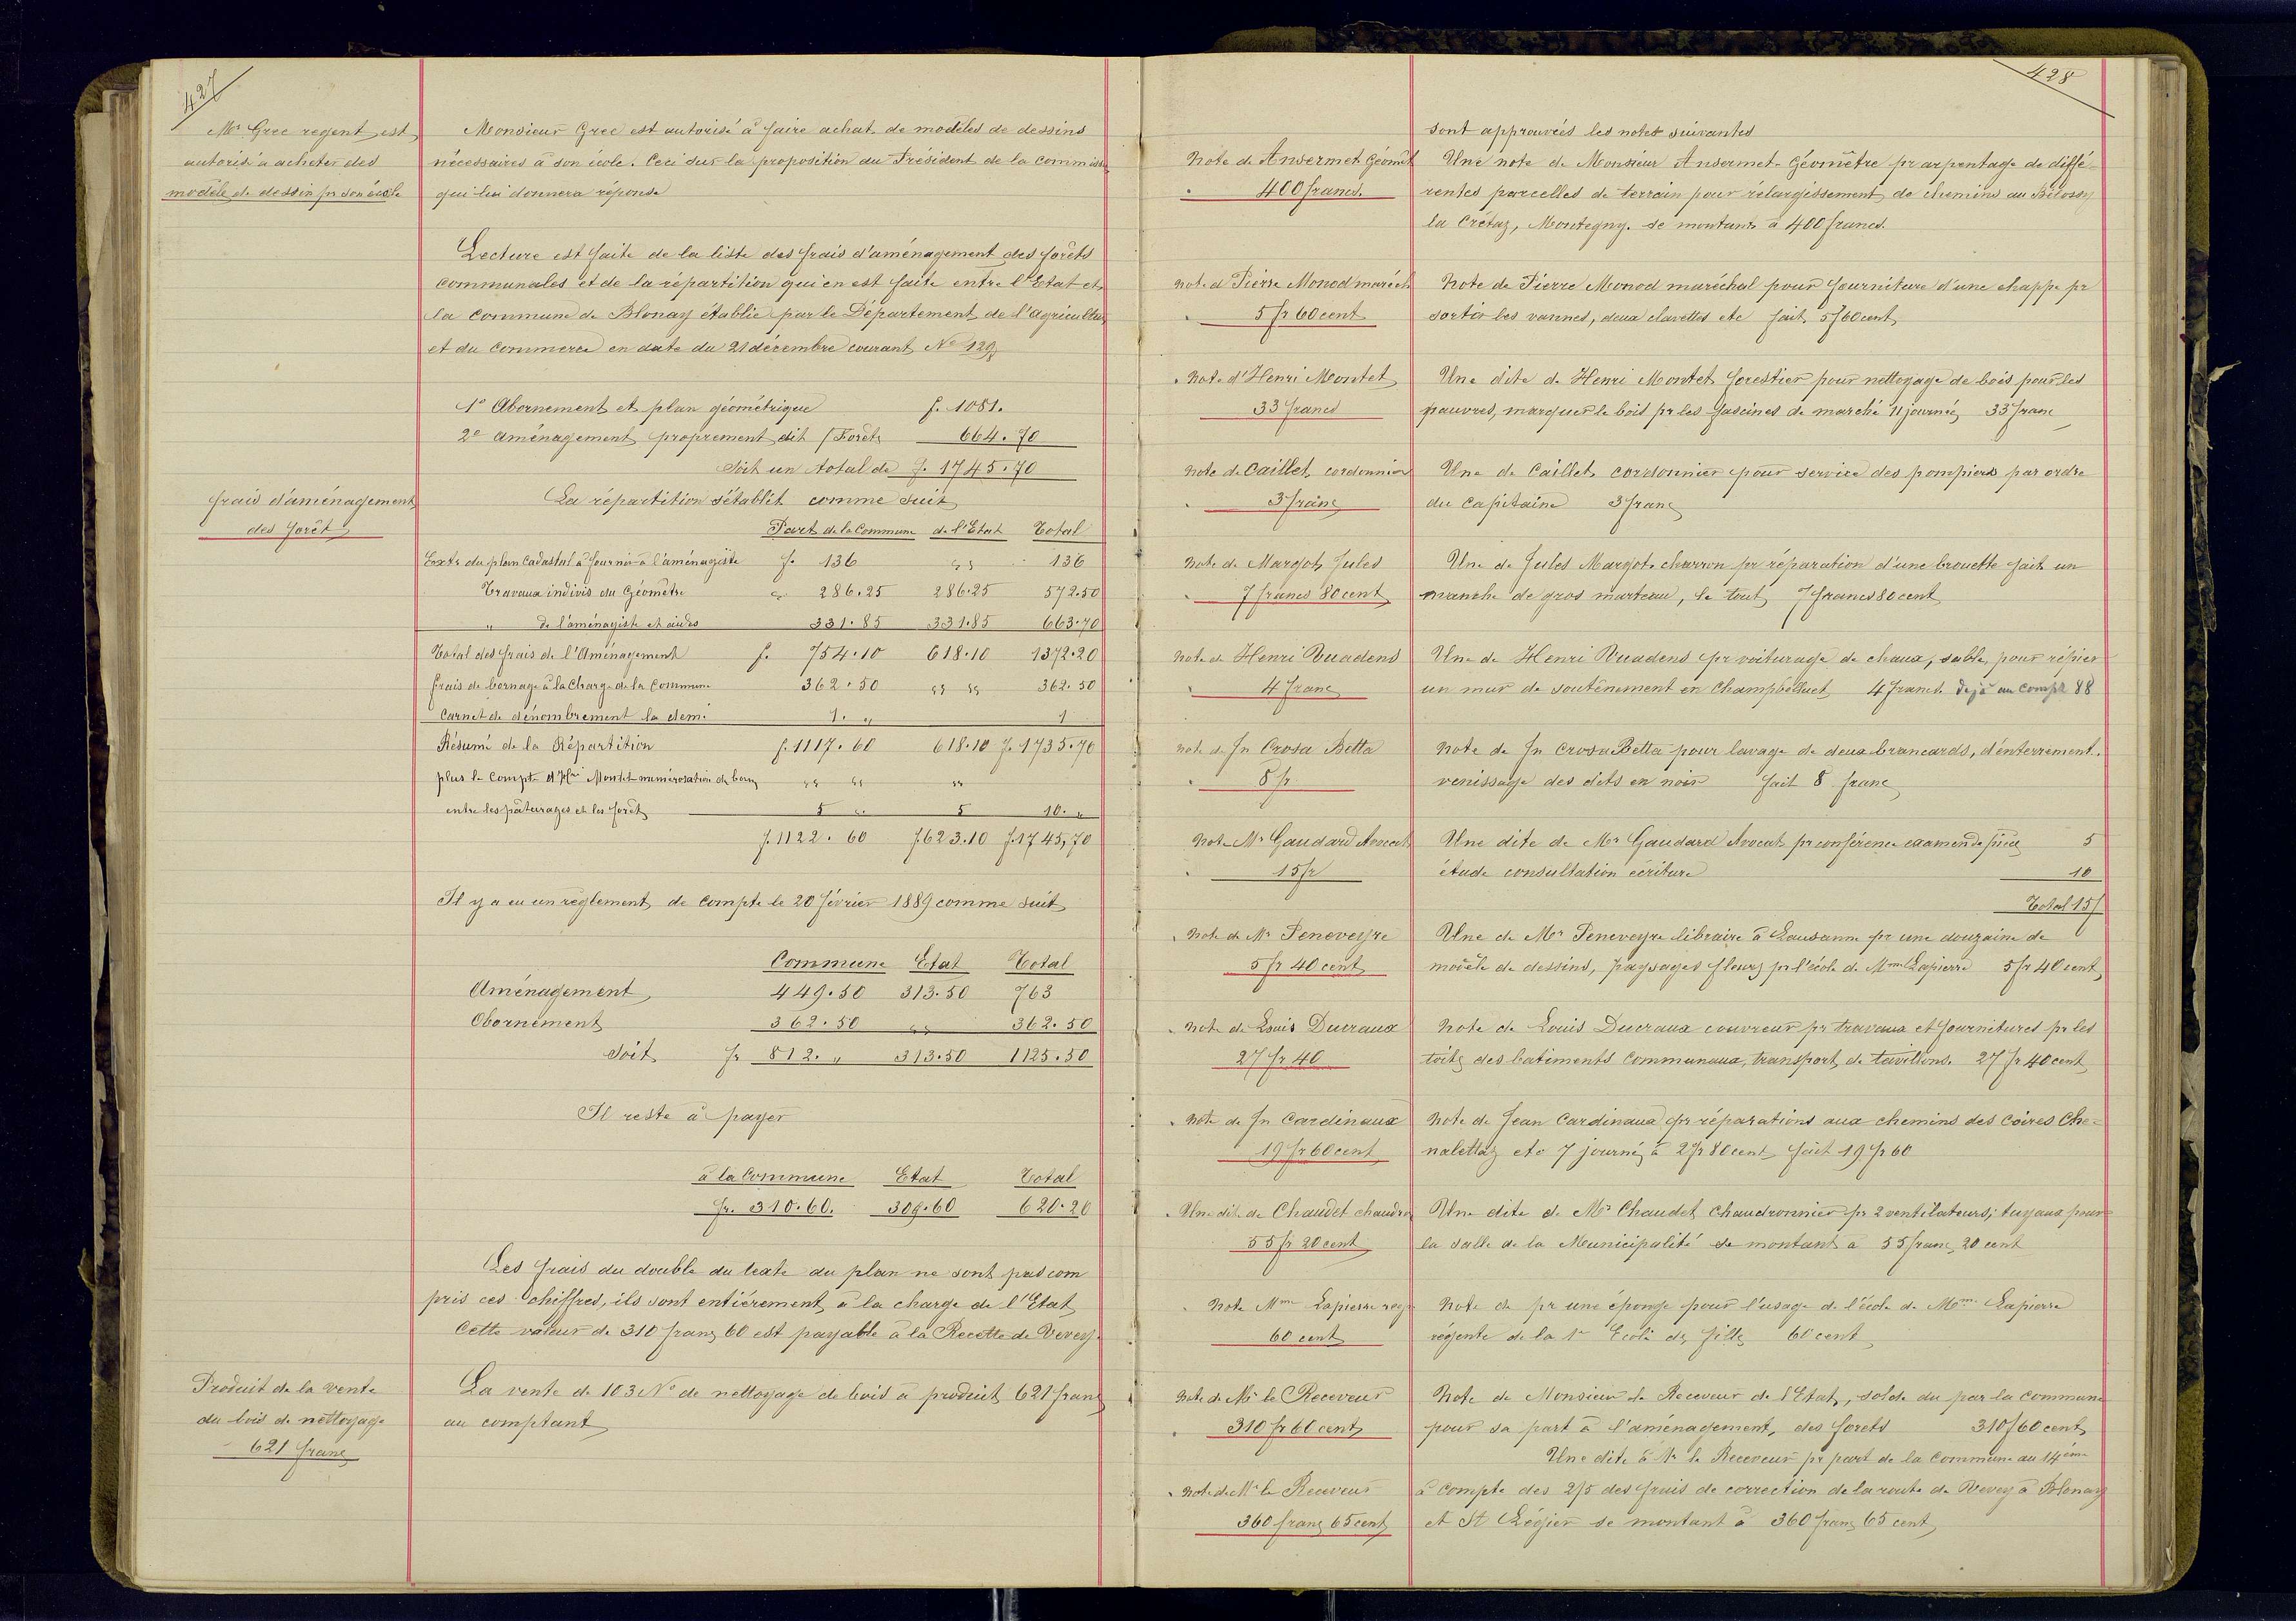 427
Mr Grec regent est
autorisé à acheter des
modèle de dessin pr son école
Monsieur Grec est autorisé à faire achat de modèles de dessins
nécessaires à son école. Ceci sur la proposition du Président de la commiss
qui lui donnera réponse
Lecture est faite de la liste des frais d'aménagement des forêts
communales et de la répartition qui en est faite entre l'Etat et
la commune de Blonay établie par le Département de l'agriculture
et du commerce en date du 21 décembre courant No 129
1o Abornement et plan géométrique f. 1081.
2e Aménagement proprement dit (Forêts 664.70
Soit un total de f. 1745.70
frais d'aménagement
des forêts
La répartition s'établit comme suit
Part de la Commune de l'Etat Total
Extr du plan Cadastral à fournir à l'aménagiste f. 136 " " 136
Travaux indivis du Géomètre " 286.25 286.25 572.50
" de l'aménagiste et aides 331.85 331.85 663.70
Total des frais de l'Aménagement f. 754.10 618.10 1372.20
frais de bornage à la charge de la Commune 362.50 " " 362.50
Carnet de dénombrement la dem. 1. " 1
Résumé de la Répartition f. 1117.60 618.10 f. 1735.70
plus le compte d'Hri Montet numérosation de born " " "
entre les pâturages et les forêts 5 " 5 10. "
f. 1122.60 f. 623.10 f. 1745,70
Il y a eu un règlement de compte le 20 février 1889 comme suit
Commune Etat Total
Aménagement 449.50 313.50 763
Obornement 362.50 " 362.50
soit fr 812. " 313.50 1125.50
Il reste à payer
à la Commune Etat Total
fr. 310.60. 309.60 620.20
Les frais du double du texte du plan ne sont pas com
pris ces chiffres, ils sont entièrement à la charge de l'Etat
Cette valeur de 310 francs 60 est payable à la Recette de Vevey.
Produit de la vente
du bois de nettoyage
621 francs
La vente de 103 No de nettoyage de bois a produit 621 francs
au comptant
428
sont approuvées les notes suivantes
Note de Ansermet Géomèt
400 francs.
Une note de Monsieur Ansermet Géomètre pr arpentage de diffé-
rentes parcelles de terrain pour rélargissement de chemins au Bilossy
la Crétaz, Montegny. se montant à 400 francs.
note d Pierre Monod maréch
5 fr 60 cent
Note de Pierre Monod maréchal pour fourniture d'une chappe pr
sortir les vannes, deux clavettes etc fait 5 f 60 cent
Note d'Henri Montet
33 francs
Une dite de Henri Montet forestier pour nettoyage de bois pour les
pauvres, marquer le bois pr les fascines de marché 11 journées 33 franc
Note de Caillet cordonnier
3 francs
Une de Caillet cordonnier pour service des pompiers par ordre
du Capitaine 3 francs
Note de Margot Jules
7 francs 80 cent
Une de Jules Margot charron pr réparation d'une brouette fait un
manche de gros marteau, le tout 7 francs 80 cent
Note de Henri Vuadens
4 francs
Une de Henri Vuadens pr voiturage de chaux, sable, pour répier
un mur de soutènement en Champbelluet 4 francs. déjà au compte 88
note de Jn Crosa Betta
8 fr
Note de Jn Crosa Betta pour lavage de deux brancards, d'enterrement.
venissage des dits en noir fait 8 francs
Note Mr Gaudard Avocat
15 fr
Une dite de Mr Gaudard Avocat pr conférence examen de pièces 5
étude consultation écriture 10
Total 15 f
Note de Mr Peneveyre
5 fr 40 cent
Une de Mr Peneveyre libraire à Lausanne pr une douzaine de
modèle de dessins, paysages fleurs pr l'école de Mme Lapierre 5 fr 40 cent
Note de Louis Ducraux
27 fr 40
Note de Louis Ducraux couvreur pr travaux et fournitures pr les
toits des batiments communaux, transport de tavillons. 27 fr 40 cent
Note de Jn Cardinaux
19 fr 60 cent
Note de Jean Cardinaux pr réparations aux chemins des Coires Che=
nalettaz etc 7 journées à 2 fr 80 cent fait 19 fr 60
Une dite de Chaudet chaudro
55 fr 20 cent
Une dite de Mr Chaudet Chaudronnier pr 2 ventilateurs, tuyaux pour
la salle de la Municipalité se montant à 55 francs 20 cent
Note Mme Lapierre rege
60 cent
Note de pr une éponge pour l'usage de l'école de Mme Lapierre
régente de la 1re Ecole des filles 60 cent
Note de Mr le Receveur
310 fr 60 cent
Note de Monsieur le Receveur de l'Etat, solde du par la commune
pour sa part à l'aménagement, des forets 310 f 60 cent
Une dite à Mr le Receveur pr part de la Commune au 14ème
Note de Mr le Receveur
360 francs 65 cent
à compte des 2/5 des frais de correction de la route de Vevey à Blonay
et St Légier se montant à 360 francs 65 cent